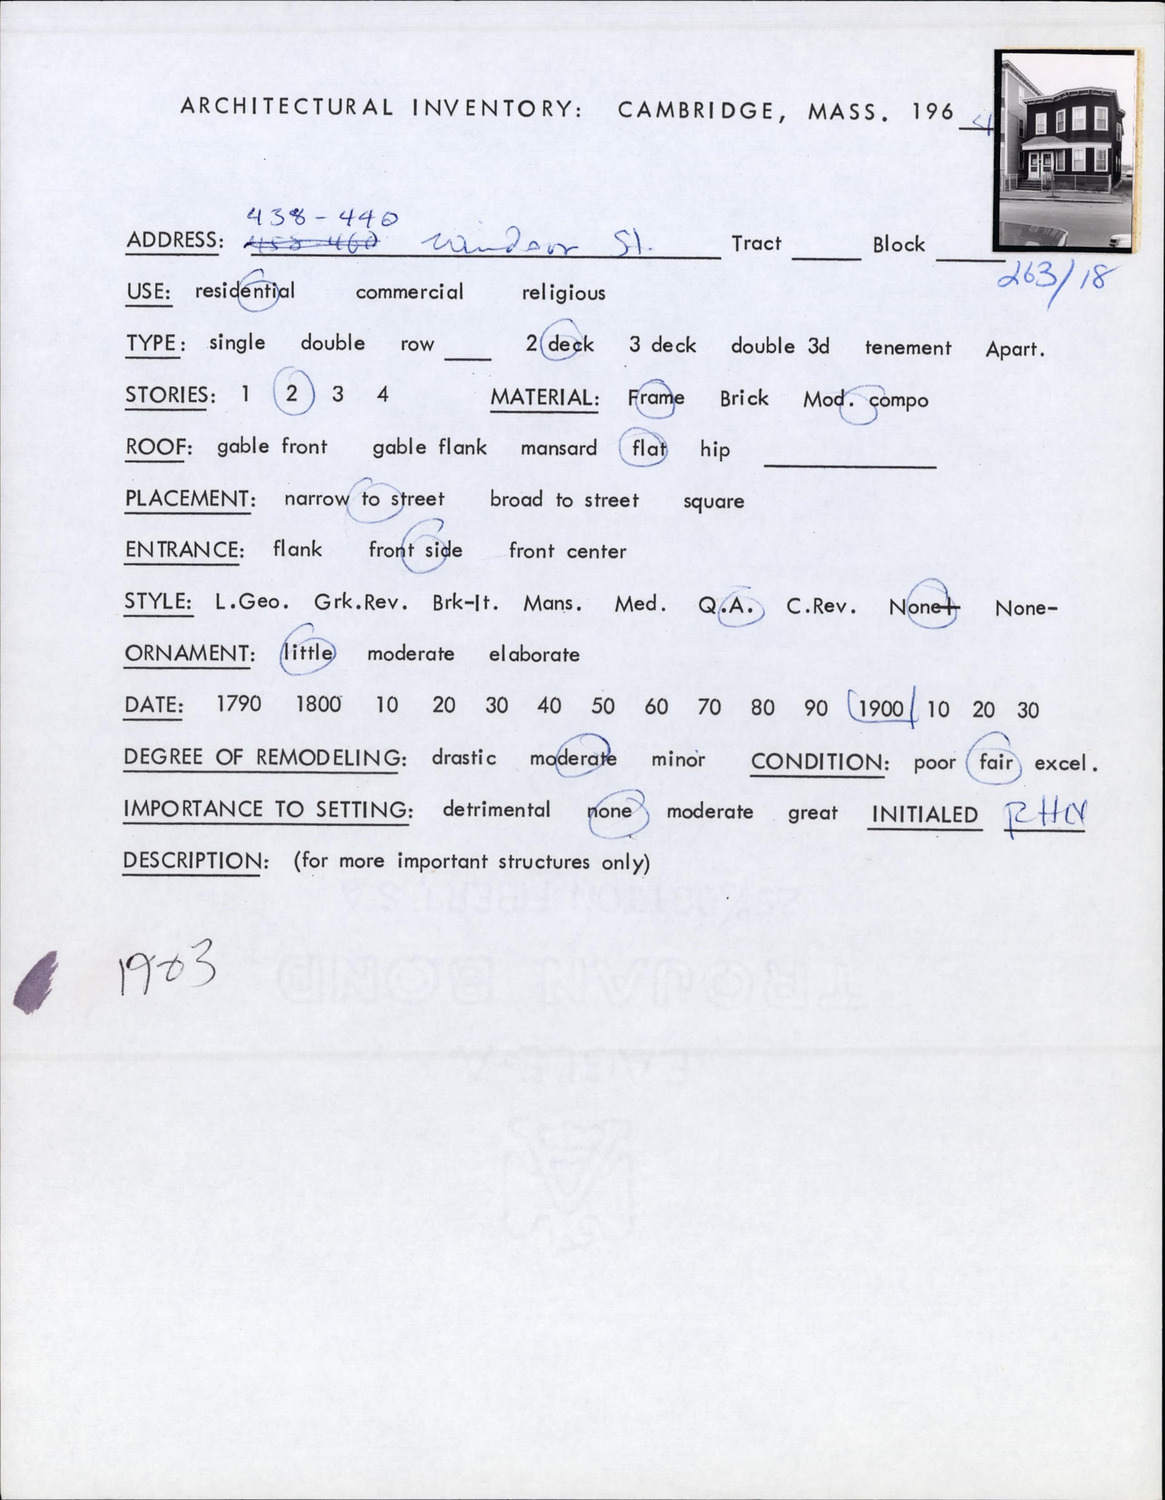 ARCHITECTURAL INVENTORY: CAMBRIDGE, MASS. 196 4
438-440
ADDRESS: 458-460 Windsor St. Tract ____ Block ____
263/18
USE: residential commercial religious
TYPE: single double row ____ 2 deck 3 deck double 3d tenement Apart.
STORIES: 1 2 3 4 MATERIAL: Frame Brick Mod. compo
ROOF: gable front gable flank mansard flat hip ____
PLACEMENT: narrow to street broad to street square
ENTRANCE: flank front side front center
STYLE: L.Geo. Grk.Rev. Brk-It. Mans. Med. Q.A. C.Rev. None+ None-
ORNAMENT: little moderate elaborate
DATE: 1790 1800 10 20 30 40 50 60 70 80 90 1900 10 20 30
DEGREE OF REMODELING: drastic moderate minor CONDITION: poor fair excel.
IMPORTANCE TO SETTING: detrimental none moderate great INITIALED RHN
DESCRIPTION: (for more important structures only)
1903